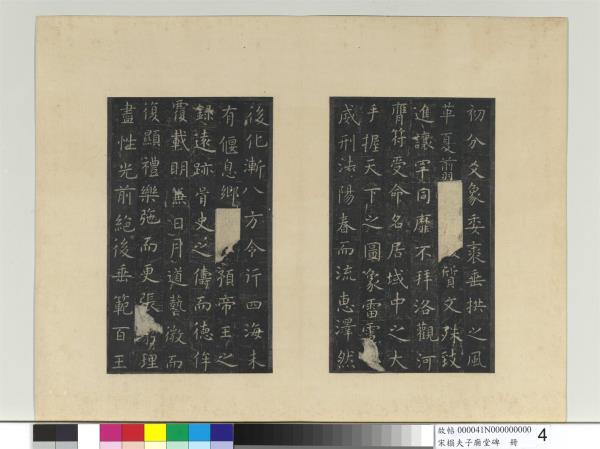 初分爻象委裘垂拱之風
革夏翦 質文殊致
進讓罕同靡不拜洛觀河
膺符受命名居域中之大
手握天下之圖象雷電
威刑法陽春而流惠澤然
後化漸八方令行四海未
有偃息鄉 預帝王之
錄遠跡胥史之儔而德侔
覆載明 日月道藝微而
復顯禮樂弛而更張 理
盡性光前絕後垂範百王
故帖 000041N000000000
宋搨夫子廟堂碑 冊
4